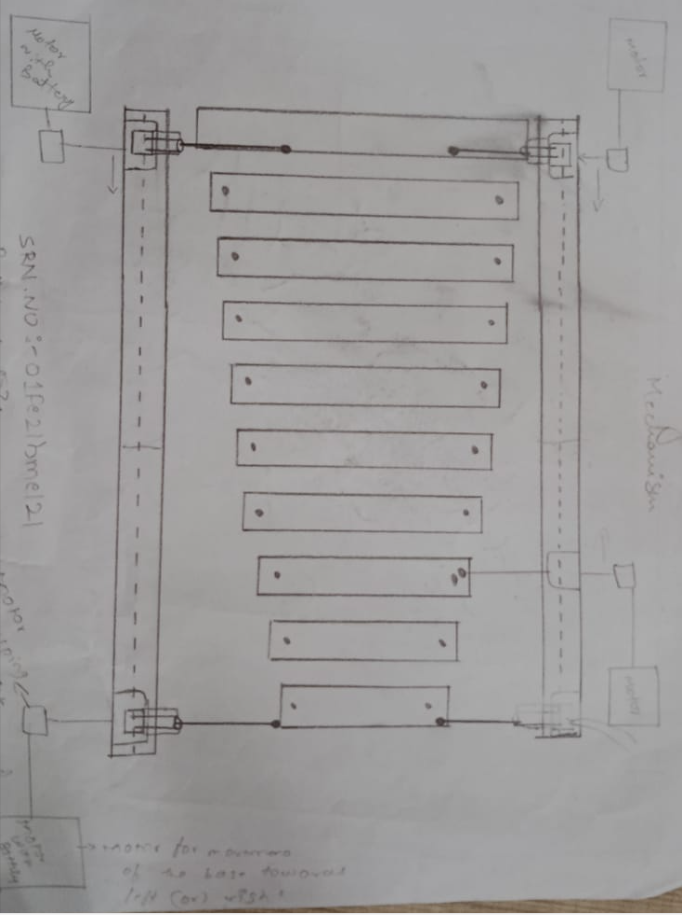 Motor
with
Battery
Motor
SRN.NO :- 01fe21bme121
Mechanism
Motor
Motor
Motor
with
Battery
→ Motor for
of the base towards
left (or) right